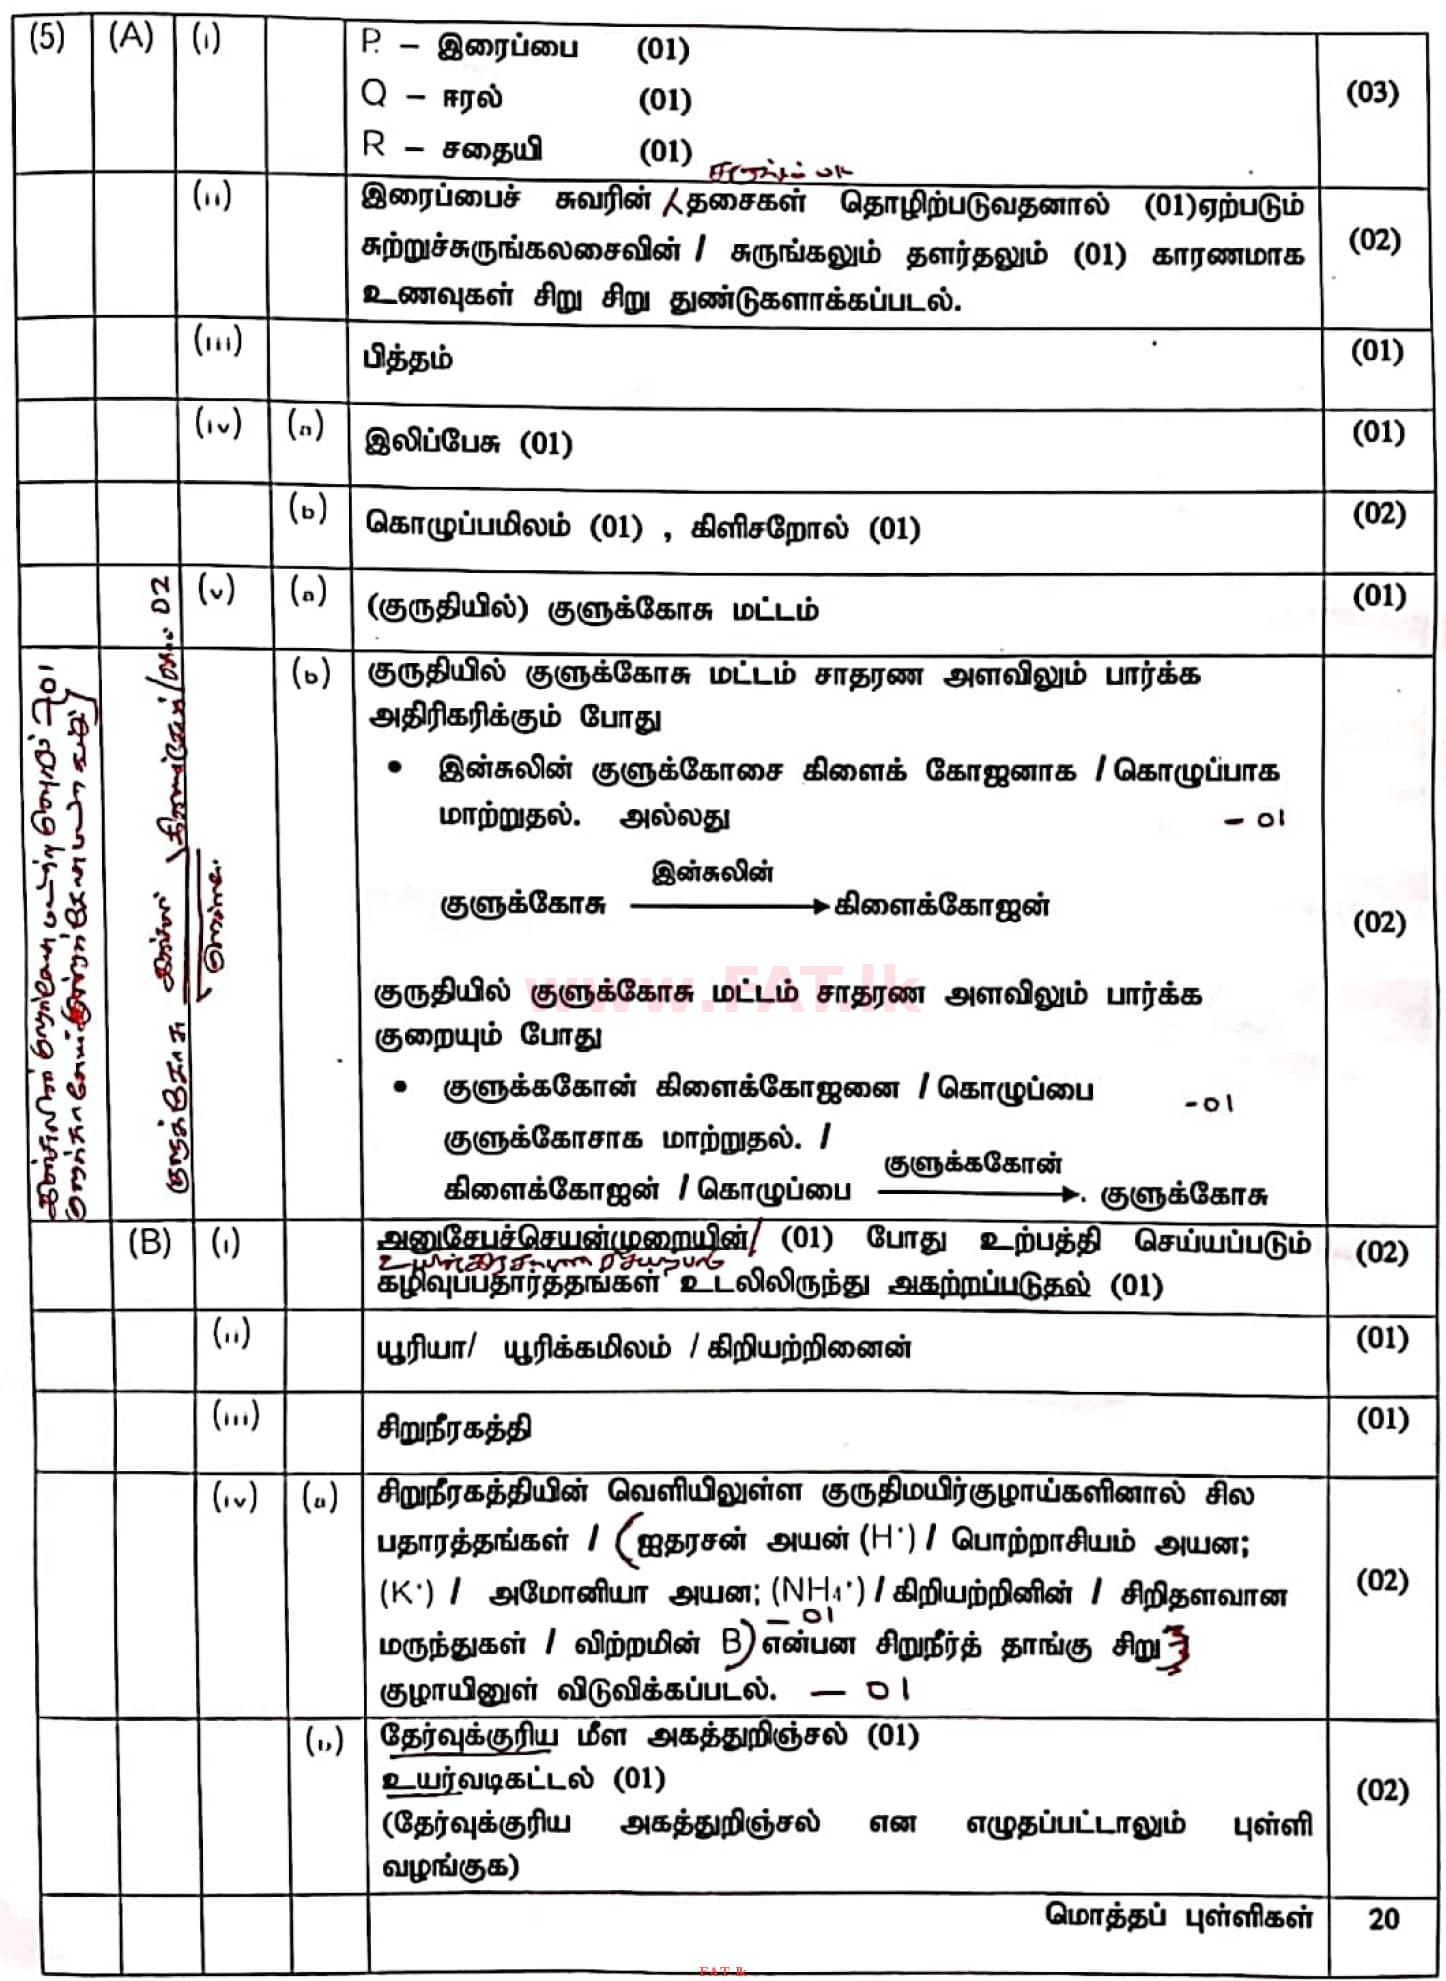 (5) (A) (i) P. – இரைப்பை (01) (03)
Q – ஈரல் (01)
R – சதையி (01)
(ii) இரைப்பைச் சுவரின் தசைகள் தொழிற்படுவதனால் (01)ஏற்படும் (02)
சுற்றுச்சுருங்கலசைவின் / சுருங்கலும் தளர்தலும் (01) காரணமாக
உணவுகள் சிறு சிறு துண்டுகளாக்கப்படல்.
(iii) பித்தம் (01)
(iv) (a) இலிப்பேசு (01) (01)
(b) கொழுப்பமிலம் (01) , கிளிசறோல் (01) (02)
(v) (a) (குருதியில்) குளுக்கோசு மட்டம் (01)
(b) குருதியில் குளுக்கோசு மட்டம் சாதரண அளவிலும் பார்க்க (02)
அதிரிகரிக்கும் போது
• இன்சுலின் குளுக்கோசை கிளைக் கோஜனாக / கொழுப்பாக
மாற்றுதல். அல்லது – 01
இன்சுலின்
குளுக்கோசு → கிளைக்கோஜன்
www.FAT.lk
குருதியில் குளுக்கோசு மட்டம் சாதரண அளவிலும் பார்க்க
குறையும் போது
• குளுக்ககோன் கிளைக்கோஜனை / கொழுப்பை – 01
குளுக்கோசாக மாற்றுதல். /
குளுக்ககோன்
கிளைக்கோஜன் / கொழுப்பை → குளுக்கோசு
(B) (i) அனுசேபச்செயன்முறையின்/ (01) போது உற்பத்தி செய்யப்படும் (02)
கழிவுப்பதார்த்தங்கள் உடலிலிருந்து அகற்றப்படுதல் (01)
(ii) யூரியா/ யூரிக்கமிலம் / கிறியற்றினைன் (01)
(iii) சிறுநீரகத்தி (01)
(iv) (a) சிறுநீரகத்தியின் வெளியிலுள்ள குருதிமயிர்குழாய்களினால் சில (02)
பதாரத்தங்கள் / (ஐதரசன் அயன் (H⁺) / பொற்றாசியம் அயன;
(K⁺) / அமோனியா அயன; (NH₄⁺) / கிறியற்றினின் / சிறிதளவான
– 01
மருந்துகள் / விற்றமின் B) என்பன சிறுநீர்த் தாங்கு சிறு
குழாயினுள் விடுவிக்கப்படல். – 01
(b) தேர்வுக்குரிய மீள அகத்துறிஞ்சல் (01) (02)
உயர்வடிகட்டல் (01)
(தேர்வுக்குரிய அகத்துறிஞ்சல் என எழுதப்பட்டாலும் புள்ளி
வழங்குக)
மொத்தப் புள்ளிகள் 20
FAT.lk